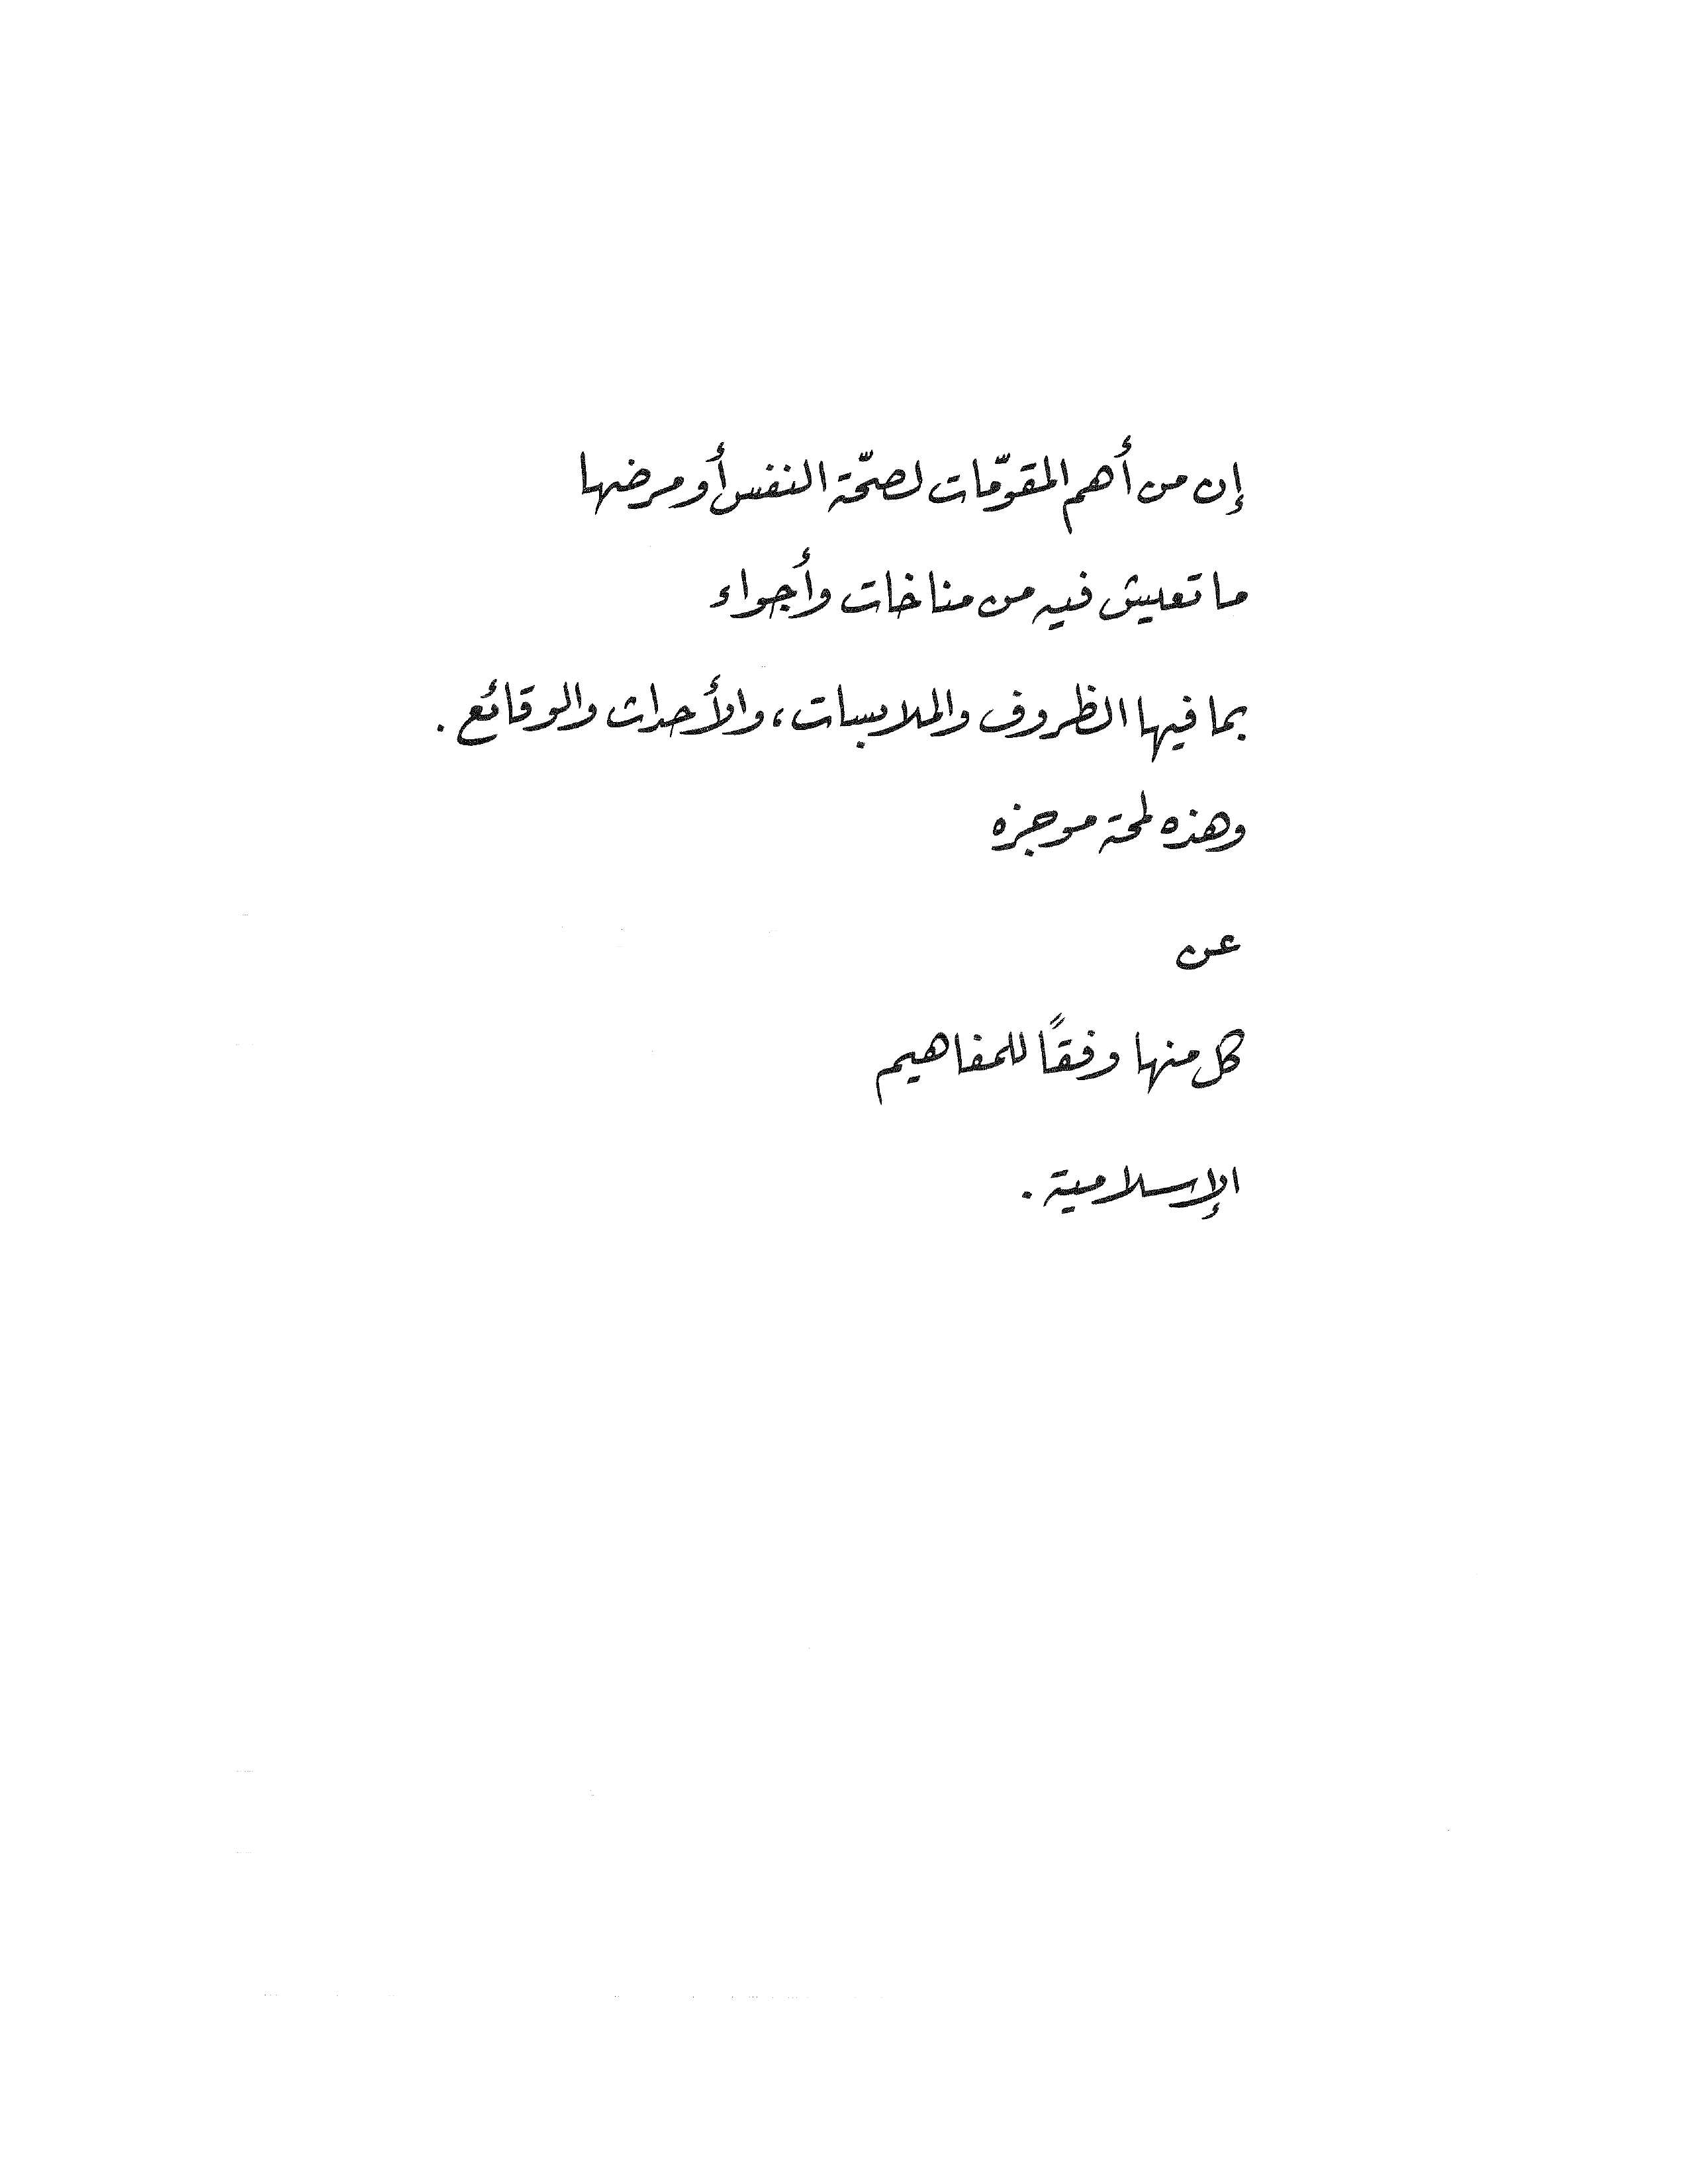 إن من أهم المقوّمات لصحّة النفس أو مرضها
ما تعيش فيه من مناخات وأجواء
بما فيها الظروف والملابسات، والأحداث والوقائع.
وهذه لمحة موجزه
عن
كل منها وفقًا للمفاهيم
الإسلامية.